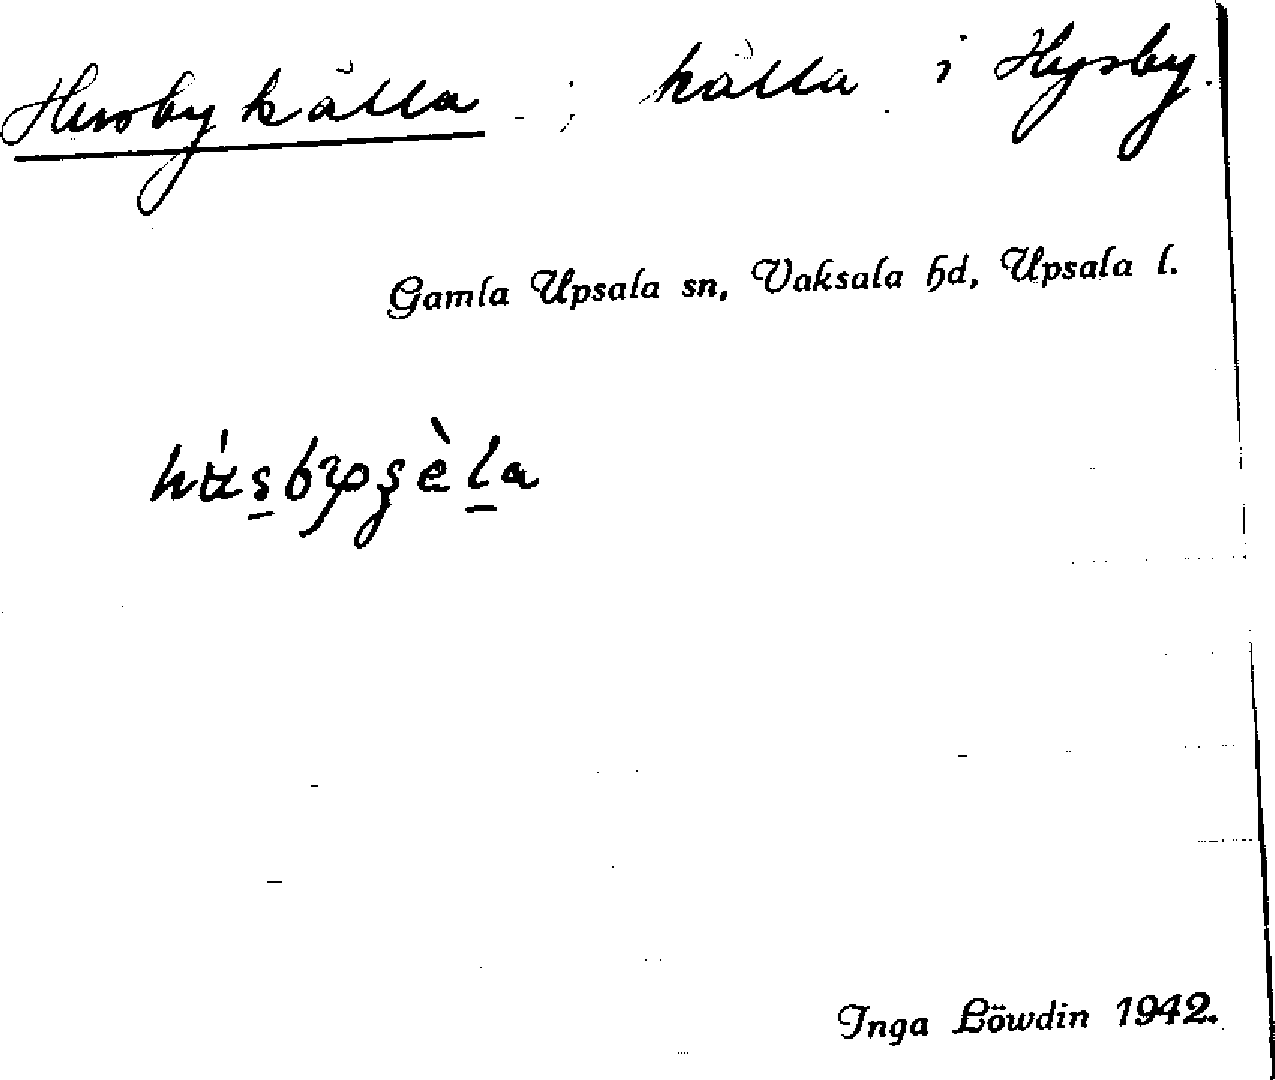 Husby källa ; källa i Hysby.
Gamla Upsala sn, Vaksala hd, Upsala l.
Inga Löwdin 1942.